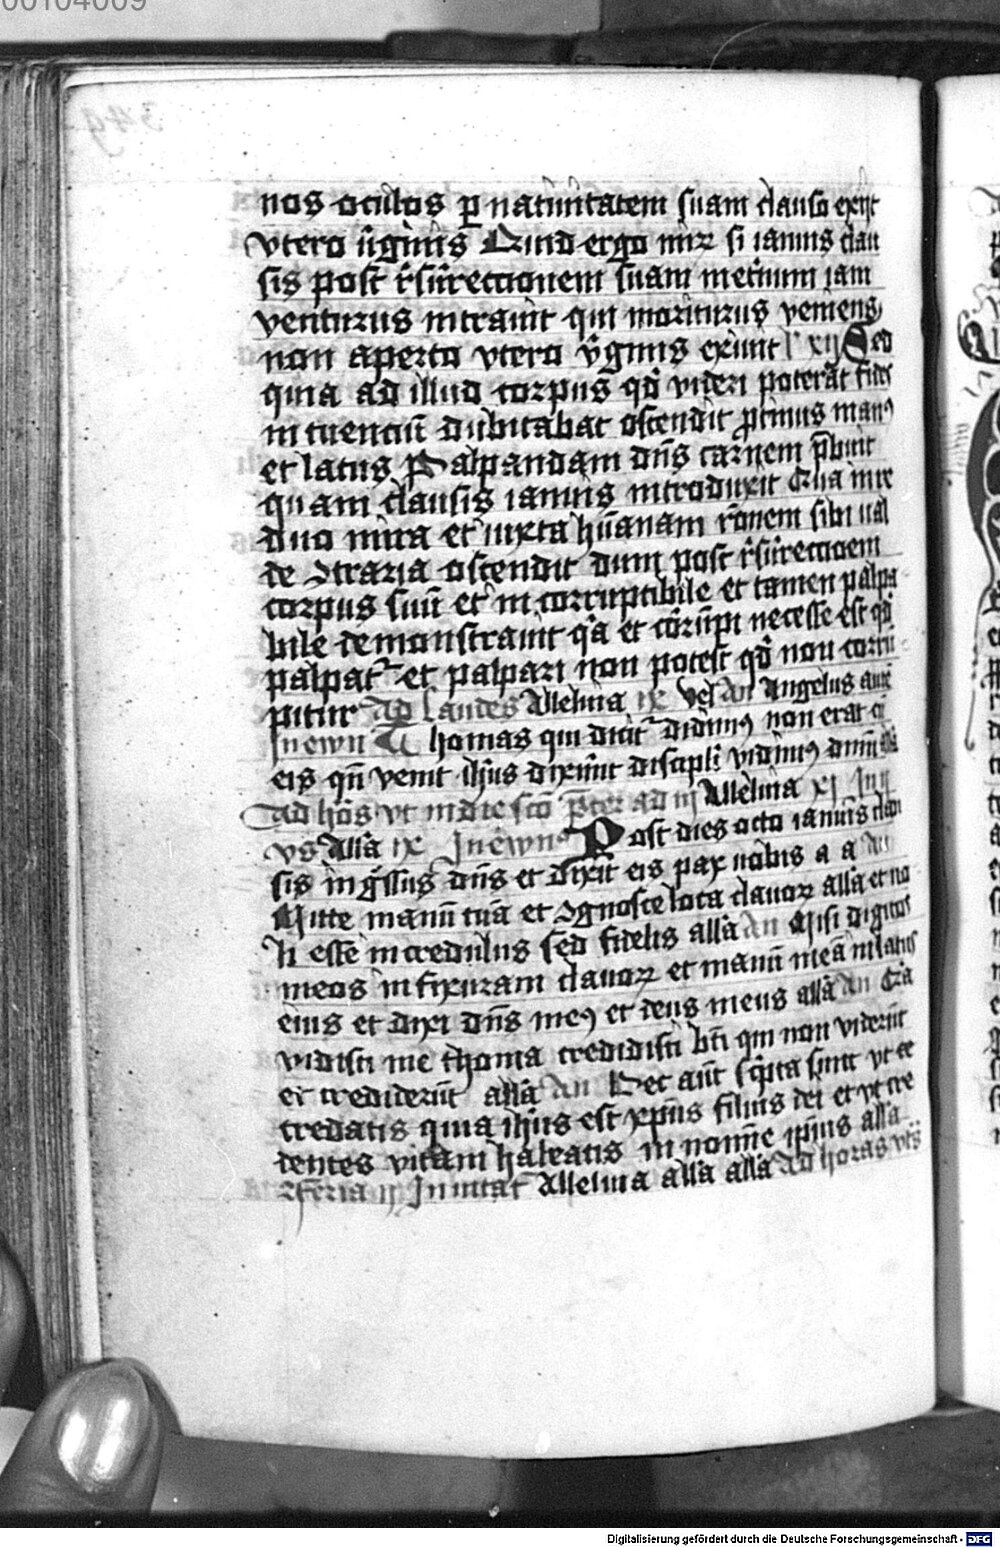 00104009
349
nos oculos p natiuitatem suam clauso exijt
vtero v̄ginis Quid ergo mirꝝ si ianuis clau
sis post r̄surrectionem suam in et̄num iam
venturus intrauit qui moriturus veniens
non aperto vtero v̄ginis exiuit l xij Sed
quia ad illud corpus qd̄ videri poterat fides
intuenciū dubitabat ostendit protinus manꝰ
et latus Palpandam dn̄s carnem p̄buit
quam clausis ianuis introduxit Qua in re
duo mira et iuxta hūanam rōnem sibi ual
de ꝯtraria ostendit dum post r̄surrectionem
corpus suū et incorruptibile et tamen palpa
bile demonstrauit q̄a et corrūpi necesse est qd̄
palpat᷑ et palpari non potest qd̄ non corrū
pitur Ad laudes Alleluia ix vel an Angelus aut̄
In ewn̄ Thomas qui dicit᷑ didimꝰ non erat cū
eis qn̄ venit ihūs dixerūt discipli vidimꝰ dn̄m alla
Ad hōs vt in die sc̄o p̄ter ad iij Alleluia xj In ij
vs̄ Allā ix In ewn̄ Post dies octo ianuis clau
sis ingr̄ssus dn̄s et dixit eis pax uobis a a an
Mitte manū tuā et ꝯgnosce loca clauoꝝ allā et no
li esse incredulus sed fidelis allā An Misi digitos
meos in fixuram clauoꝝ et manū meā in latus
eius et dixi dn̄s meꝰ et deus meus allā an Q̄a
vidisti me thoma credidisti bt̄i qui non viderūt
et crediderūt allā An Hec aūt sc̄pta sunt vt
credatis quia ihūs est xp̄us filius dei et vt cre
dentes vitam habeatis in nomīe ip̄ius allā
feria ij Inuitat᷑ Alleluia allā allā ad horas vt s̄
Digitalisierung gefördert durch die Deutsche Forschungsgemeinschaft - DFG